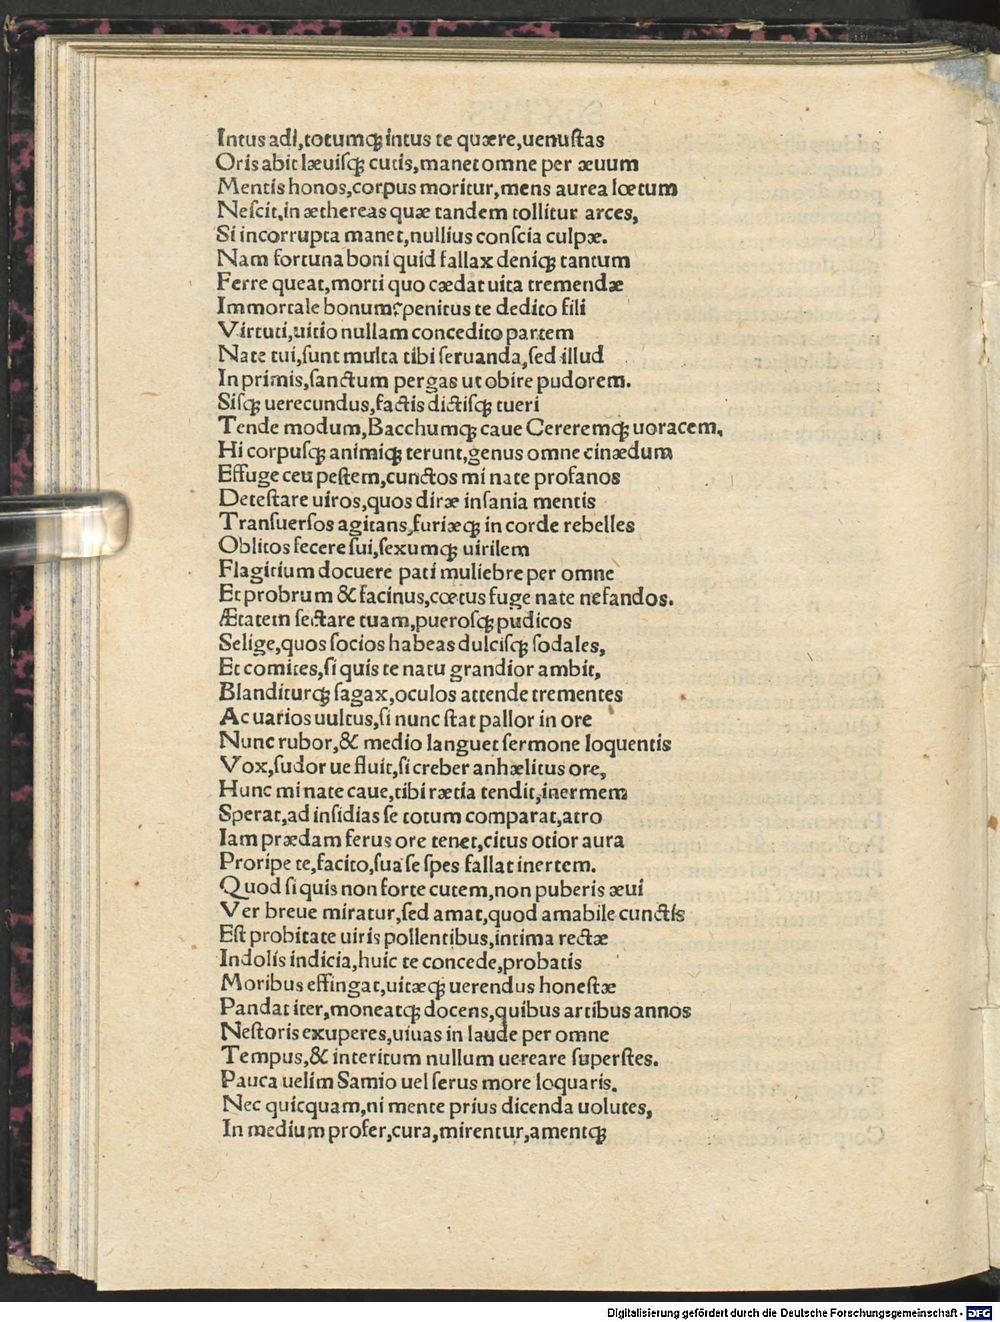 Intus adi,totumqꝫ intus te quære,uenuſtas
Oris abit læuiſqꝫ cutis,manet omne per æuum
Mentis honos,corpus moritur,mens aurea lœtum
Neſcit,in æthereas quæ tandem tollitur arces,
Si incorrupta manet,nullius conſcia culpæ.
Nam fortuna boni quid fallax deniqꝫ tantum
Ferre queat,morti quo cædat uita tremendæ
Immortale bonum?penitus te dedito fili
Virtuti,uitio nullam concedito partem
Nate tui,ſunt multa tibi ſeruanda,ſed illud
In primis,ſanctum pergas ut obire pudorem.
Siſqꝫ uerecundus,factis dictiſqꝫ tueri
Tende modum,Bacchumqꝫ caue Cereremqꝫ uoracem,
Hi corpuſqꝫ animiqꝫ terunt,genus omne cinædum
Effuge ceu peſtem,cunctos mi nate profanos
Deteſtare uiros,quos diræ inſania mentis
Tranſuerſos agitans,furiæqꝫ in corde rebelles
Oblitos fecere ſui,ſexumqꝫ uirilem
Flagitium docuere pati muliebre per omne
Et probrum & facinus,cœtus fuge nate nefandos.
Ætatem ſectare tuam,pueroſqꝫ pudicos
Selige,quos ſocios habeas dulciſqꝫ ſodales,
Et comites,ſi quis te natu grandior ambit,
Blanditurqꝫ ſagax,oculos attende trementes
Ac uarios uultus,ſi nunc ſtat pallor in ore
Nunc rubor,& medio languet ſermone loquentis
Vox,ſudor ue fluit,ſi creber anhælitus ore,
Hunc mi nate caue,tibi rætia tendit,inermem
Sperat,ad inſidias ſe totum comparat,atro
Iam prædam ferus ore tenet,citus otior aura
Proripe te,facito,ſua ſe ſpes fallat inertem.
Quod ſi quis non forte cutem,non puberis æui
Ver breue miratur,ſed amat,quod amabile cunctis
Eſt probitate uiris pollentibus,intima rectæ
Indolis indicia,huic te concede,probatis
Moribus effingat,uitæqꝫ uerendus honeſtæ
Pandat iter,moneatqꝫ docens,quibus artibus annos
Neſtoris exuperes,uiuas in laude per omne
Tempus,& interitum nullum uereare ſuperſtes.
Pauca uelim Samio uel ſerus more loquaris.
Nec quicquam,ni mente prius dicenda uolutes,
In medium profer,cura,mirentur,amentqꝫ
Digitalisierung gefördert durch die Deutsche Forschungsgemeinschaft - DFG